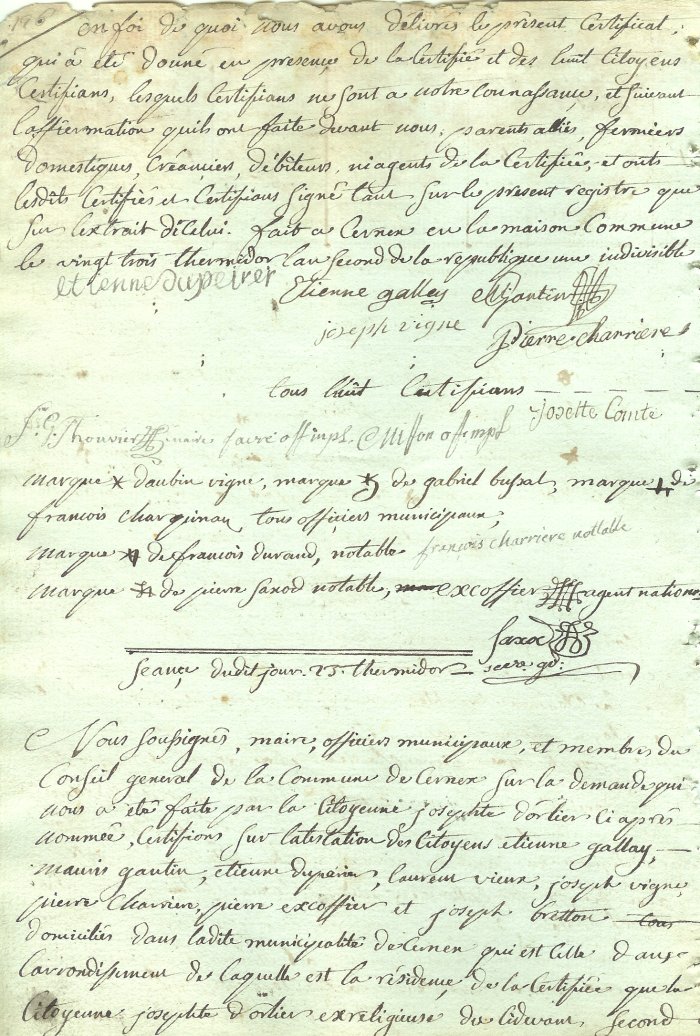 196 en foi de quoi nous avons délivrés le présent Certificat,
qui à été donné en presence de la Certifié et des huit Citoyens
Certifians, lesquels Certifians ne sont a notre Connaissance, et suivant
l'affiermation qu'ils ont faite devant nous, parents alliés, fermiers
domestiques, Créanciers, débiteurs, ni agents de la Certifiée, et onts
lesdits Certifiés et Certifians signé tant sur le present registre que
sur l'extrait dicelui. fait a Cernex en la maison Commune
le vingt trois thermidor l'an second de la republique une indivisible
etienne dupeirer Etienne gallay M gantin
joseph vigne pierre charriere
tous huit Certifians Josette Comte
Thouvier maire favre off mpl. C Misson off mpl
marque x d'aubin vigne, marque de gabriel bussat, marque de
françois Charquinau, tous officiers municipaux,
marque de francois durand, notable françois charriere notable
marque de pierre saxod notable, excoffier agent national
Saxod
Seance dudit jour 23. thermidor secre. gd:
Nous soussignés, maire, officiers municipaux, et membres du
Conseil general de la Commune de Cernex sur la demande qui
nous a été faite par la Citoyenne josephte d'orlier ci après
nommée, Certifions sur l'atestation des Citoyens etienne gallay,
mauris gantin, etienne duparier, laurent vieux, joseph vigne
pierre Charriere, pierre excoffier et joseph bretton tous
domiciliés dans ladite municipalité de Cernex qui est Celle dans
l'arrondissement de laquelle est la résidence de la Certifiée que la
Citoyenne josephte d'orlier exreligieuse du cidevant second